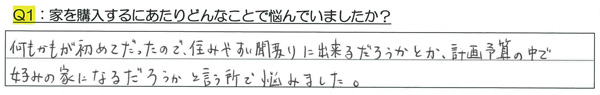 Q1：家を購入するにあたりどんなことで悩んでいましたか？
何もかもが初めてだったので、住みやすい間取りに出来るだろうかとか、計画予算の中で
好みの家になるだろうかと言う所で悩みました。